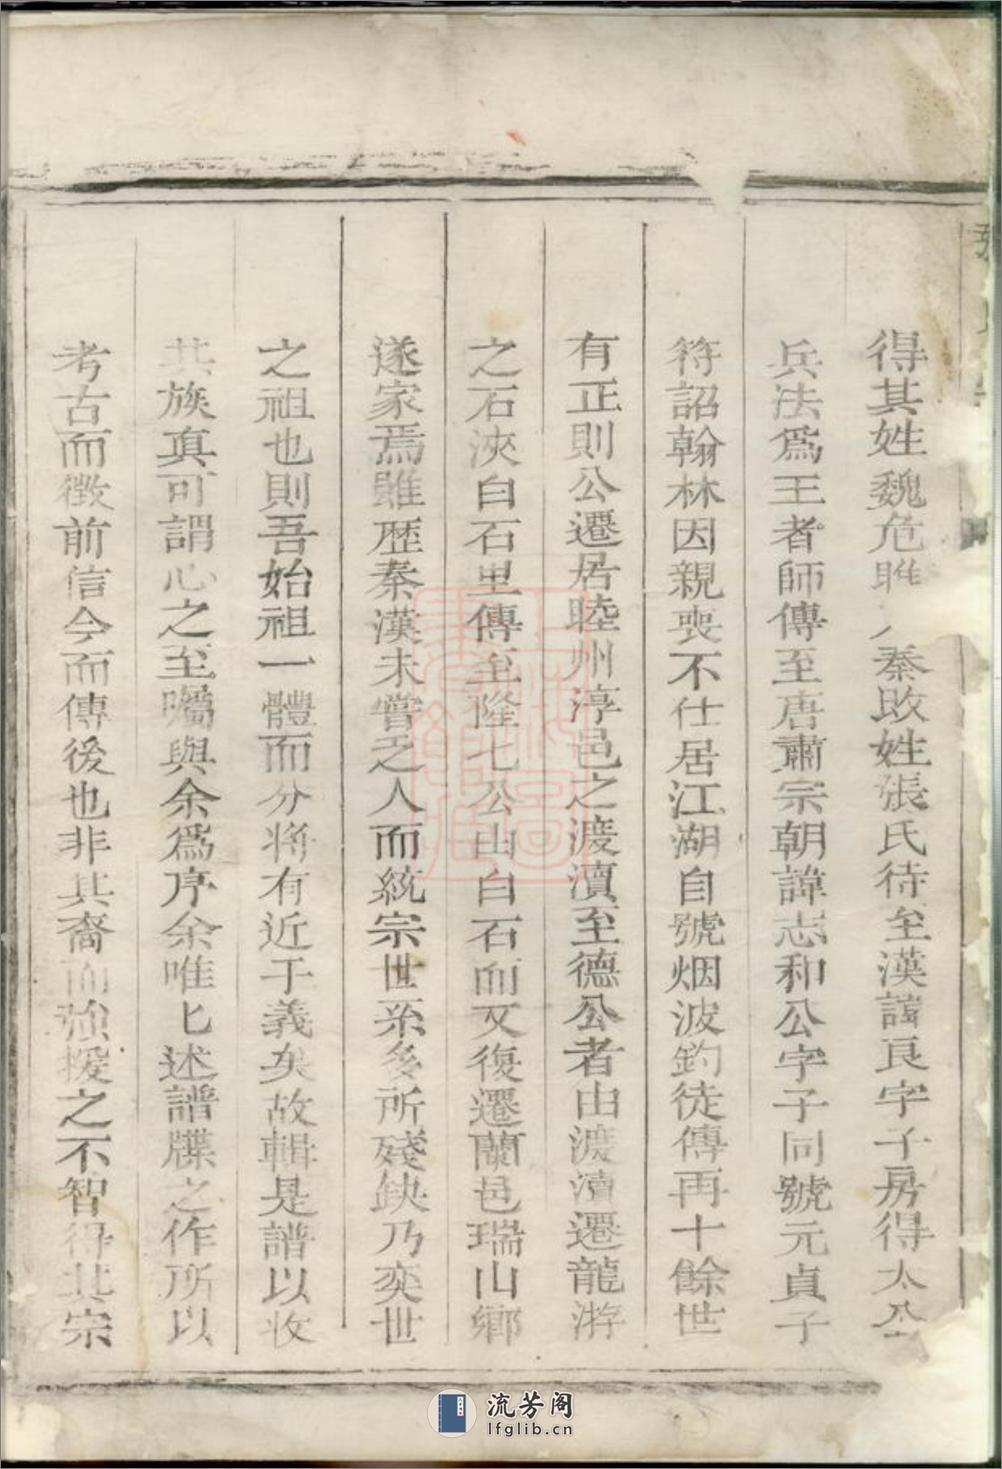 得其姓魏危睢人秦改姓張氏待至漢諱良字子房得太公
兵法爲王者師傳至唐肅宗朝諱志和公字子同號元貞子
符詔翰林因親喪不仕居江湖自號烟波釣徒傳再十餘世
有正則公遷居睦州淳邑之渡瀆至德公者由渡瀆遷龍游
之石浹白石里傳至隆七公由白石而又復遷蘭邑瑞山鄉
遂家焉雖歷秦漢未嘗乏人而統宗世系多所殘缺乃奕世
之祖也則吾始祖一體而分將有近于義矣故輯是譜以收
其族眞可謂心之至囑與余爲序余唯匕述譜牒之作所以
考古而徵前信今而傳後也非其裔而強援之不智得其宗
流芳阁
lfglib.cn